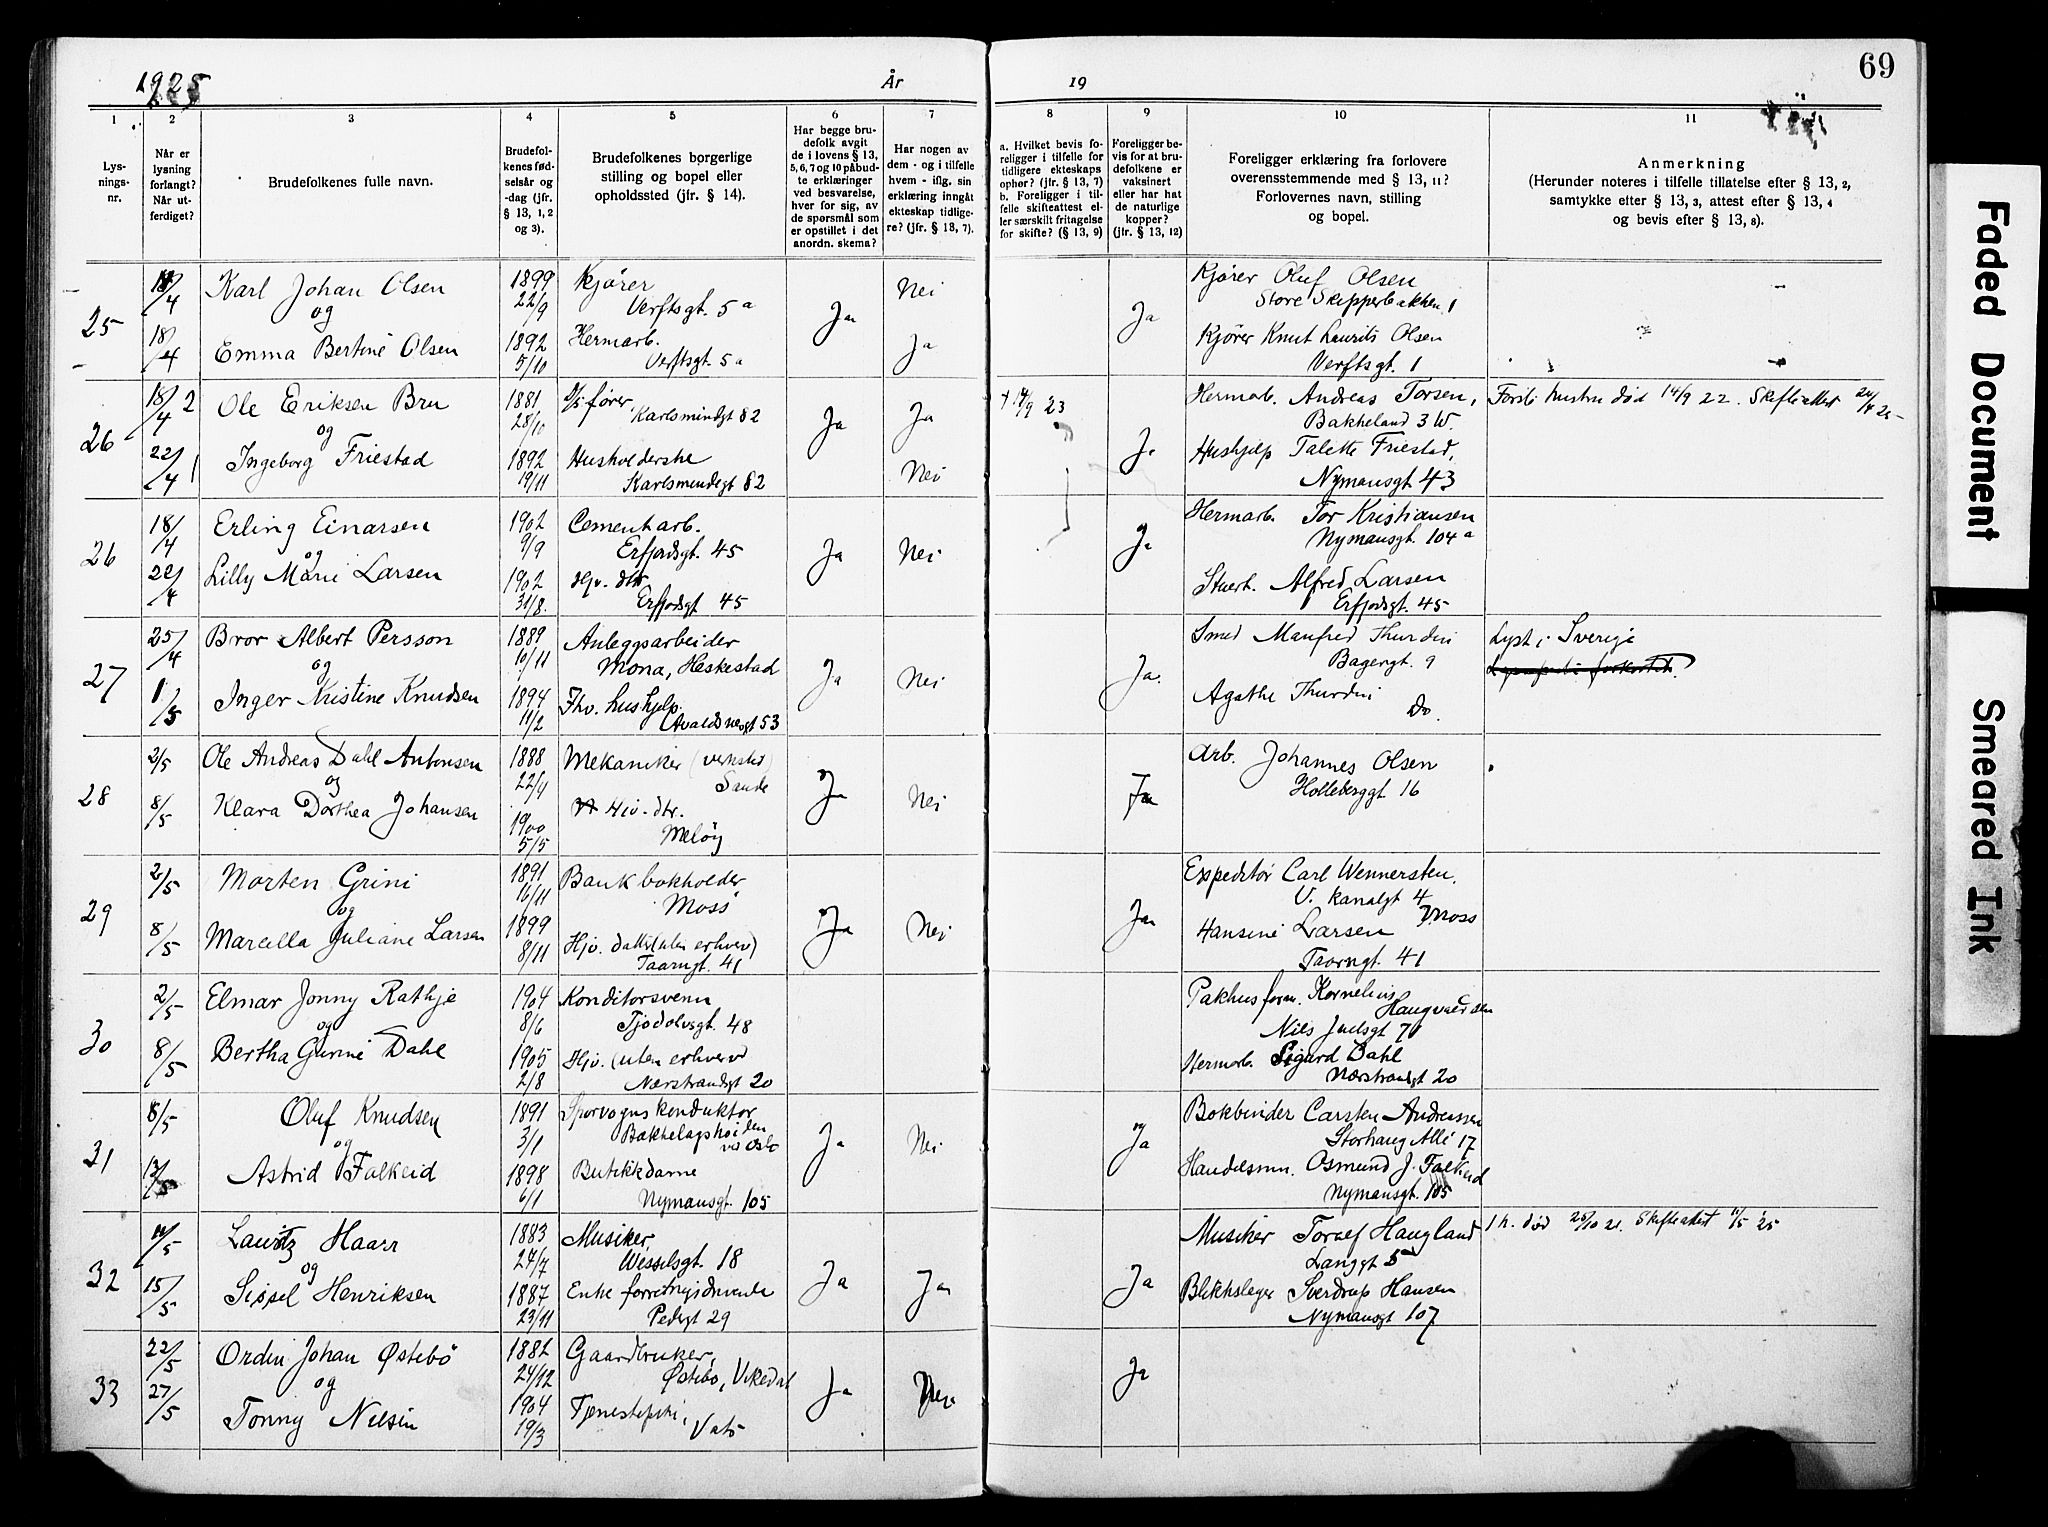 1925
År
19
69
1
2
3
4
5
6
7
8
9
10
11
Lys-
nings-
nr.
Når er
lysning
forlangt?
Når ut-
ferdiget?
Brudefolkenes fulle navn.
Brudefol-
kenes fød-
selsår og
-dag (jfr.
§ 13, 1, 2
og 3).
Brudefolkenes borgerlige
stilling og bopel eller
opholdssted (jfr. § 14).
Har begge bru-
defolk avgit
de i lovens § 13,
5, 6, 7 og 10 påbud-
te erklæringer
ved besvarelse,
hver for sig, av
de spørsmål som
er opstillet i det
anordn. skema?
Har nogen av
dem - og i tilfelle
hvem - iflg. sin
erklæring inngåt
ekteskap tidlige-
re? (jfr. § 13, 7).
a. Hvilket bevis fo-
religger i tilfelle for
tidligere ekteskaps
ophør? (jfr. § 13, 7)
b. Foreligger i til-
felle skifteattest el-
ler særskilt fritagelse
for skifte? (§ 13, 9)
Foreligger be-
vis for at bru-
defolkene er
vaksinert
eller har hat
de naturlige
kopper?
(jfr. § 13, 12)
Foreligger erklæring fra forlovere
overensstemmende med § 13, 11?
Forlovernes navn, stilling
og bopel.
Anmerkning
(Herunder noteres i tilfelle tillatelse efter § 13, 2,
samtykke efter § 13, 3, attest efter § 13, 4
og bevis efter § 13, 8).
25
18/4
18/4
Karl Johan Olsen
og
Emma Bertine Olsen
1899
22/9
1892
5/10
Kjører
Verftsgt. 5a
Hermarb.
Verftsgt. 5a
Ja
Nei
Ja
Ja
Kjører Oluf Olsen
Store Skipperbakken 1
Kjører Knut Laurits Olsen
Verftsgt. 1
26
18/4 2
22/4 1
Ole Eriksen Bru
og
Ingeborg Friestad
1881
28/10
1892
19/11
fører
Karlsmindgt 82
Husholderske
Karlsmindegt 82
Ja
Ja
Nei
† 14/9 23
Ja
Hermarb. Andreas Torsen,
Bakkeland 3 W.
Hushjelp Talette Friestad,
Nymansgt 43
hustru død 14/9 22. Skifteattest
26
18/4
22/4
Erling Einarsen
og
Lilly Marie Larsen
1902
9/9
1902
31/8.
Cementarb.
Erfjordsgt. 45
Hjv. dtr.
Erfjordsgt 45
Ja
Nei
Ja
Hermarb. Tor Kristiansen
Nymansgt. 104a
Stuert. Alfred Larsen
Erfjordsgt. 45
27
25/4
1/5
Bror Albert Persson
og
Inger Kristine Knudsen
1889
10/11
1894
14/2
Anleggsarbeider
Mona, Heskestad
Fhv. hushjelp.
Avaldsnesgt 53
Ja
Nei
Ja.
Smed Manfred Thurdin
Bagergt. 9
Agathe Thurdin
Do.
Lyst i Sverige
28
2/5
8/5
Ole Andreas Dahl Antonsen
og
Klara Dorthea Johansen
1888
22/4
1900
5/5
Mekaniker (verksted)
Sande
Hjv. dtr.
Meløy
Ja
Nei
Ja
Arb. Johannes Olsen
Holleberggt 16
29
2/5
8/5
Morten Grini
og
Marcella Juliane Larsen
1891
16/11
1899
8/11
Bank bokholder
Moss
Hjv. datter (uten erhverv)
Taarngt. 41
Ja
Nei
Ja
Expeditør Carl Wennersten,
V. kanalgt 4
Moss
Hansine Larsen
Taarngt. 41
30
2/5
8/5
Elmar Jonny Rathje
og
Bertha Gunne Dahl
1904
8/6
1905
2/8
Konditorsvenn
Tjodolvsgt. 48
Hjv. (uten erhverv
Nærstrandsgt 20
Pakhusform. Kornelius
Haugvaldsen
Niels Juelsgt 70
Hermarb. Sigurd Dahl
Nærstrandsgt 20
31
8/5
13/5
Oluf Knudsen
og
Astrid Falkeid
1891
3/1
1898
6/1
Sporvognskonduktør
Bækkelagshøiden
ved Oslo
Butikkdame
Nymansgt. 105
Ja
Nei
Ja
Bokbinder Carsten Andreassen
Storhaug Allé 17
Handelsmn. Osmund J. Falkeid
Nymansgt. 105
32
11/5
15/5
Lauritz Haarr
og
Sissel Henriksen
1883
27/7
1887
23/11
Musiker
Wesselsgt. 18
Enke forretningsdrivende
Pedersgt 29
Ja
Ja
Ja
Musiker Toralf Haugland
Langgt 5
Blikkslager Sverdrup Hansen
Nymansgt 107
1 h. død 25/10 21. Skifteattest 11/5 '25
33
22/5
27/5
Ordin Johan Østebø
og
Tonny Nilsen
1882
24/12
1904
19/3
Gaardbruker,
Østebø, Vikedal
Tjenestepike,
Vats
Ja
Nei
Ja
Faded Document
Smeared Ink